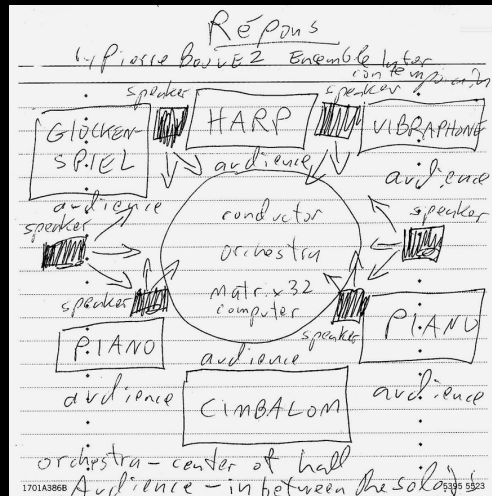 Répons
by Pierre BoulEZ Ensemble Inter
contemporain
speaker speaker
GLOCKEN-
SPIEL
HARP
VIBRAPHONE
audience
audience audience
speaker speaker
conductor
orchestra
matrix 32
computer
speaker speaker
PIANO PIANO
audience
audience audience
CIMBALOM
orchestra - center of hall
Audience - in between the soloists
1701A386B 5395 5523